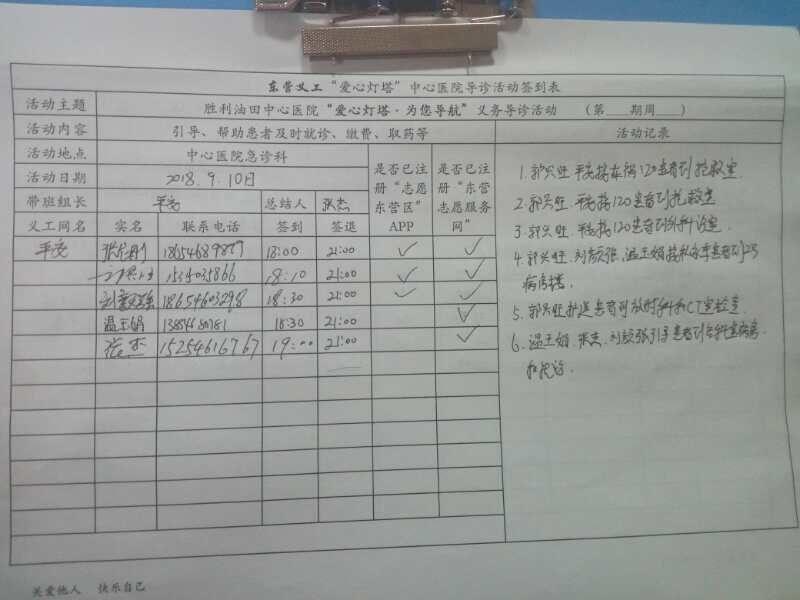 东营义工“爱心灯塔”中心医院导诊活动签到表
活动主题 胜利油田中心医院“爱心灯塔·为您导航”义务导诊活动 （第 期周 ）
活动内容 引导、帮助患者及时就诊、缴费、取药等 活动记录
活动地点 中心医院急诊科 是否已注册“志愿东营区”APP 是否已注册“东营志愿服务网”
活动日期 2018.9.10日
带班组长 平亮 总结人 张杰
义工网名 实名 联系电话 签到 签退
平亮 18654689879 18:00 21:00 ✓ ✓
18:10 21:00 ✓ ✓
18654603298 18:30 21:00 ✓ ✓
温玉娟 18:30 21:00 ✓
张杰 15254616767 19:00 21:00 ✓
1.郭兴旺.平亮接 120患者到抢救室.
2.郭兴旺.平亮接120患者到抢救室
3.郭兴旺.平亮接120患者到外科诊室.
4.郭兴旺.刘 张,温玉娟接私家车患者到
病房楼.
5.郭兴旺护送患者到放射科和CT室检查.
6.温玉娟.张杰.刘 张引导患者到各科室病房
关爱他人 快乐自己